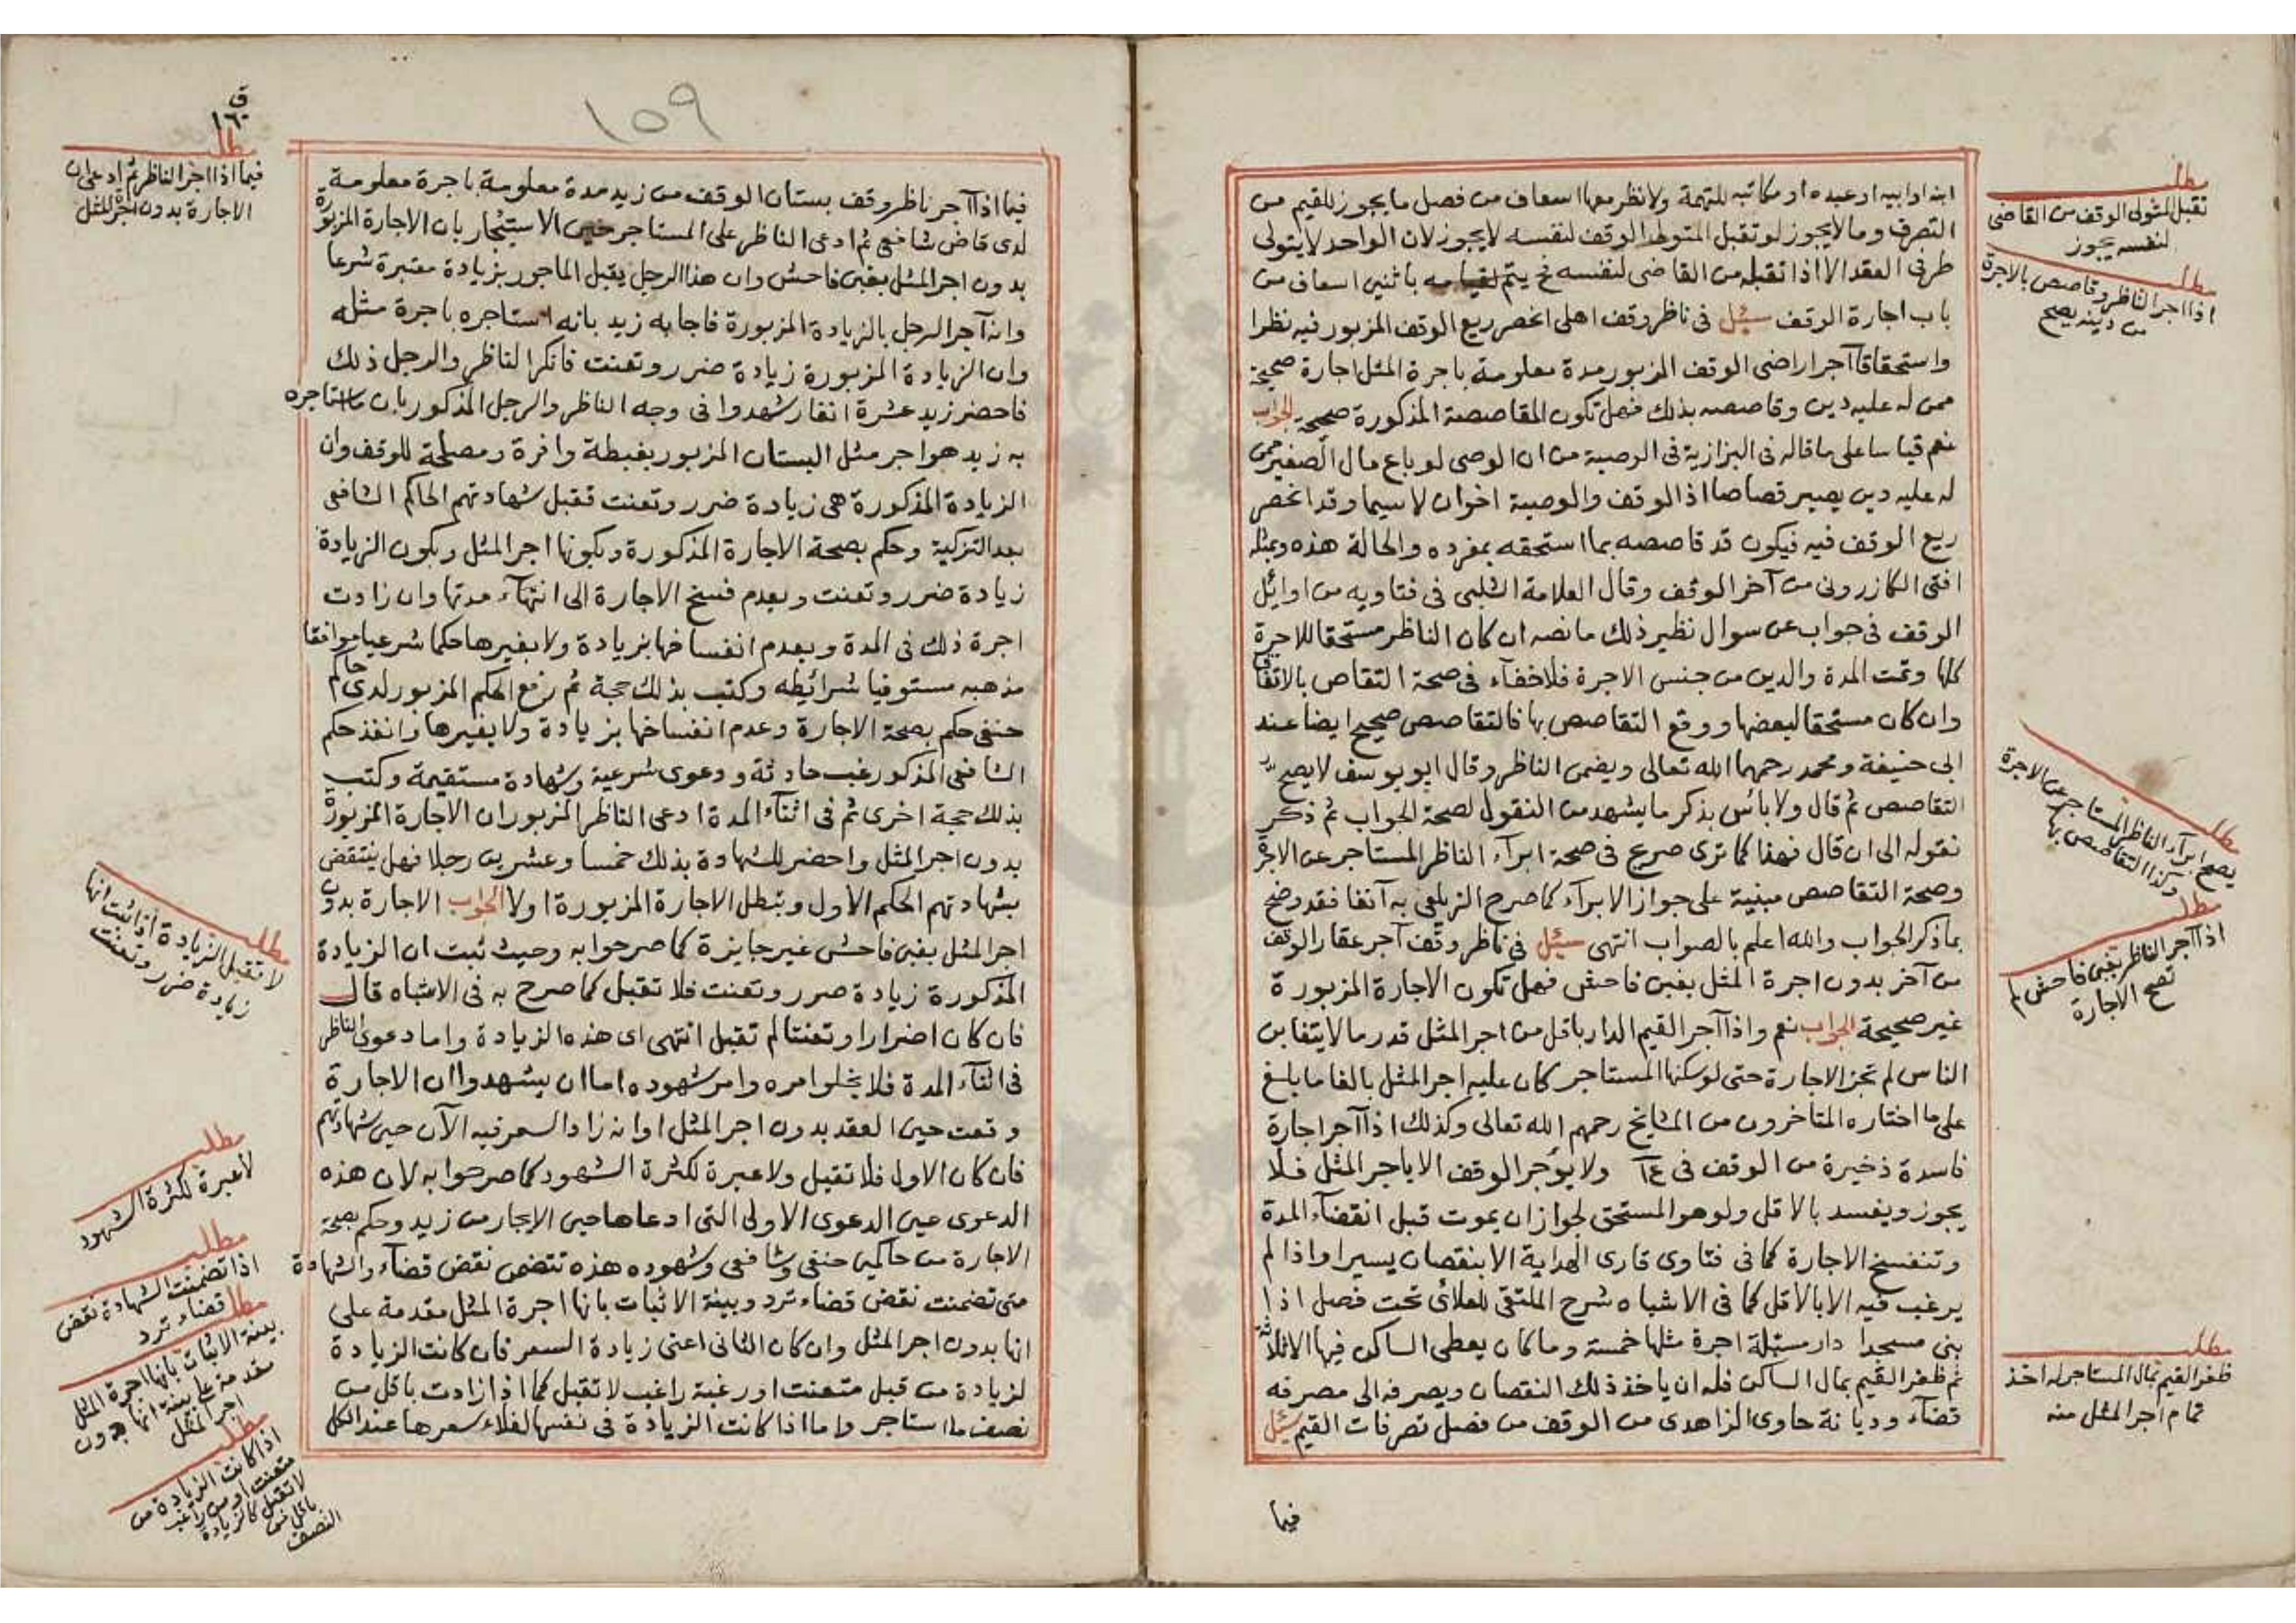 ابنه او ابيه او عبده او مكاتبه للتهمة ولا نظر معها اسعاف من فصل ما يجوز للقيم من
التصرف وما لا يجوز لو تقبل المتولى الوقف لنفسه لا يجوز لان الواحد لا يتولى
طرفى العقد الا اذا تقبله من القاضى لنفسه فح يتم لقيامه باثنين اسعاف من
باب اجارة الوقف سئل فى ناظر وقف اهلى انحصر ريع الوقف المزبور فيه نظرا
واستحقاقا آجر اراضى الوقف المزبور مدة معلومة باجرة المثل اجارة صحيحة
ممن له عليه دين وقاصصه بذلك فهل تكون المقاصصة المذكورة صحيحة الجواب
نعم قياسا على ما قاله فى البزازية فى الوصية من ان الوصى لو باع مال الصغير ممن
له عليه دين يصير قصاصا اذ الوقف والوصية اخوان لا سيما وقد انحصر
ريع الوقف فيه فيكون قد قاصصه بما استحقه بمفرده والحالة هذه وبمثله
افتى الكازرونى من آخر الوقف وقال العلامة الشلبى فى فتاويه من اوائل
الوقف فى جواب عن سوال نظير ذلك ما نصه ان كان الناظر مستحقا للاجرة
كلها وتمت المدة والدين من جنس الاجرة فلا خفآء فى صحة التقاص بالاتفاق
وان كان مستحقا لبعضها ووقع التقاصص بها فالتقاصص صحيح ايضا عند
ابى حنيفة ومحمد رحمهما الله تعالى ويضمن الناظر وقال ابو يوسف لا يصح
التقاصص ثم قال ولا بائس بذكر ما يشهد من النقول لصحة الجواب ثم ذكر
نقوله الى ان قال فهذا كما ترى صريح فى صحة ابرآء الناظر المستاجر عن الاجرة
وصحة التقاصص مبنية على جواز الابرآء كما صرح الزيلعى به آنفا فقد وضح
بما ذكر الجواب والله اعلم بالصواب انتهى سئل فى ناظر وقف آجر عقار الوقف
من آخر بدون اجرة المثل بغبن فاحش فهل تكون الاجارة المزبورة
غير صحيحة الجواب نعم واذا آجر القيم الدار باقل من اجر المثل قدر ما لا يتغابن
الناس لم تجز الاجارة حتى لو سكنها المستاجر كان عليه اجر المثل بالغا ما بلغ
على ما اختاره المتاخرون من المشايخ رحمهم الله تعالى وكذلك اذا آجر اجارة
فاسدة ذخيرة من الوقف فى ولا يؤجر الوقف الا باجر المثل فلا
يجوز ويفسد بالاقل ولو هو المستحق لجواز ان يموت قبل انقضآء المدة
وتنفسخ الاجارة كما فى فتاوى قارى الهداية الا بنقصان يسير او اذا لم
يرغب فيه الا بالاقل كما فى الاشباه شرح الملتقى للعلائى تحت فصل اذا
بنى مسجدا دار مسبلة اجرة مثلها خمسة وما كان يعطى الساكن فيها الا ثلاثة
ثم ظفر القيم بمال الساكن فله ان ياخذ ذلك النقصان ويصرفه الى مصرفه
قضآء وديانة حاوى الزاهدى من الوقف من فصل تصرفات القيم سئل
فيما
مطلب
تقبل المتولى الوقف من القاضى
لنفسه يجوز
مطلب
اذا اجر الناظر وقاصص بالاجرة
من دينه يصح
مطلب
يصح ابرآء الناظر المستاجر عن الاجرة
وكذا التقاصص بها
مطلب
اذا آجر الناظر بغبن فاحش لم
تصح الاجارة
مطلب
ظفر القيم بمال المستاجر له اخذ
تمام اجر المثل منه
١٥٩
ق
١٦٠
فيما اذا آجر ناظر وقف بستان الوقف من زيد مدة معلومة باجرة معلومة
لدى قاض شافعى ثم ادعى الناظر على المستاجر حين الاستيجار بان الاجارة المزبورة
بدون اجر المثل بغبن فاحش وان هذا الرجل يقبل الماجور بزيادة معتبرة شرعا
وانه آجر الرجل بالزيادة المزبورة فاجابه زيد بانه استاجره باجرة مثله
وان الزيادة المزبورة زيادة ضرر وتعنت فانكر الناظر والرجل ذلك
فاحضر زيد عشرة انفار شهدوا فى وجه الناظر والرجل المذكور بان ما استاجره
به زيد هو اجر مثل البستان المزبور بغبطة وافرة ومصلحة للوقف وان
الزيادة المذكورة هى زيادة ضرر وتعنت فقبل شهادتهم الحاكم الشافعى
بعد التزكية وحكم بصحة الاجارة المذكورة وبكونها اجر المثل وبكون الزيادة
زيادة ضرر وتعنت وبعدم فسخ الاجارة الى انتهآء مدتها وان زادت
اجرة ذلك فى المدة وبعدم انفساخها بزيادة ولا بغيرها حكما شرعيا موافقا
مذهبه مستوفيا شرائطه وكتب بذلك حجة ثم رفع الحكم المزبور لدى حاكم
حنفى حكم بصحة الاجارة وعدم انفساخها بزيادة ولا بغيرها وانفذ حكم
الشافعى المذكور غب حادثة ودعوى شرعية وشهادة مستقيمة وكتب
بذلك حجة اخرى ثم فى اثنآء المدة ادعى الناظر المزبور ان الاجارة المزبورة
بدون اجر المثل واحضر للشهادة بذلك خمسا وعشرين رجلا فهل ينتقض
بشهادتهم الحكم الاول وتبطل الاجارة المزبورة اولا الجواب الاجارة بدون
اجر المثل بغبن فاحش غير جايزة كما صرحوا به وحيث ثبت ان الزيادة
المذكورة زيادة ضرر وتعنت فلا تقبل كما صرح به فى الاشباه قال
فان كان اضرارا وتعنتا لم تقبل انتهى اى هذه الزيادة واما دعوى الناظر
فى اثنآء المدة فلا يخلو امره وامر شهوده اما ان يشهدوا ان الاجارة
وقعت حين العقد بدون اجر المثل او انه زاد السعر فيه الآن حين شهادتهم
فان كان الاول فلا تقبل ولا عبرة لكثرة الشهود كما صرحوا به لان هذه
الدعوى عين الدعوى الاولى التى ادعاها حين الايجار من زيد وحكم بصحة
الاجارة من حاكمين حنفى وشافعى وشهوده هذه تتضمن نقض قضآء والشهادة
متى تضمنت نقض قضاء ترد وبينة الاثبات بانها اجرة المثل مقدمة على
انها بدون اجر المثل وان كان الثانى اعنى زيادة السعر فان كانت الزيادة
لزيادة من قبل متعنت او رغبة راغب لا تقبل كما اذا زادت باقل من
نصف ما استاجر واما اذا كانت الزيادة فى نفسها لغلاء سعرها عند الكل
مطلب
فيما اذا اجر الناظر ثم ادعى ان
الاجارة بدون اجر المثل
مطلب
لا تقبل الزيادة اذا ثبت انها
زيادة ضرر وتعنت
مطلب
لا عبرة لكثرة الشهود
مطلب
اذا تضمنت الشهادة نقض
قضاء ترد
مطلب
بينة الاثبات بانها اجرة المثل
مقدمة على بينة انها بدون
اجر المثل
مطلب
اذا كانت الزيادة من
متعنت او من راغب
لا تقبل كالزيادة
باقل من
النصف